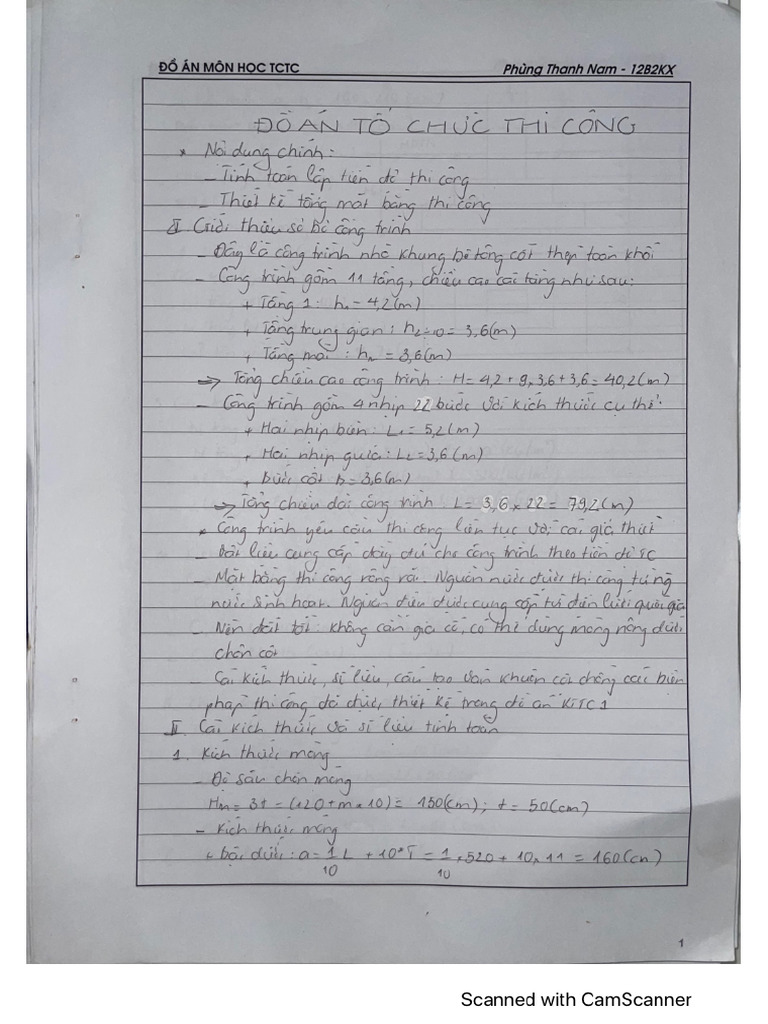 ĐỒ ÁN MÔN HỌC TCTC Phùng Thanh Nam - 12B2KX
ĐỒ ÁN TỔ CHỨC THI CÔNG
* Nội dung chính:
- Tính toán lập tiến độ thi công
- Thiết kế tổng mặt bằng thi công
I Giới thiệu sơ bộ công trình
- Đây là công trình nhà khung bê tông cốt thép toàn khối
- Công trình gồm 11 tầng, chiều cao các tầng như sau:
+ Tầng 1: h₁ = 4,2(m)
+ Tầng trung gian: h₂₋₁₀ = 3,6(m)
+ Tầng mái: hₘ = 3,6(m)
=> Tổng chiều cao công trình: H = 4,2 + 9×3,6 + 3,6 = 40,2(m)
- Công trình gồm 4 nhịp 22 bước với kích thước cụ thể:
+ Hai nhịp biên: L₁ = 5,2(m)
+ Hai nhịp giữa: L₂ = 3,6(m)
+ Bước cột B = 3,6(m)
=> Tổng chiều dài công trình: L = 3,6×22 = 79,2(m)
* Công trình yêu cầu thi công liên tục với các giả thiết
- Vật liệu cung cấp đầy đủ cho công trình theo tiến độ TC
- Mặt bằng thi công rộng rãi. Nguồn nước được thi công từ ng
nước sinh hoạt. Nguồn điện được cung cấp từ điện lưới quốc gia
- Nền đất tốt: không cần gia cố, có thể dùng móng nông dưới
chân cột
- Các kích thước, số liệu, cấu tạo ván khuôn cột chống các biện
pháp thi công đã được thiết kế trong đồ án KTTC 1
II Các kích thước và số liệu tính toán
1. Kích thước móng
- Độ sâu chôn móng
Hₘ = 3t = (120 + m×10) = 150(cm); t = 50(cm)
- Kích thước móng
+ bậc dưới: a = 1/10 L + 10*T = 1/10 ×520 + 10×11 = 160(cm)
1
Scanned with CamScanner